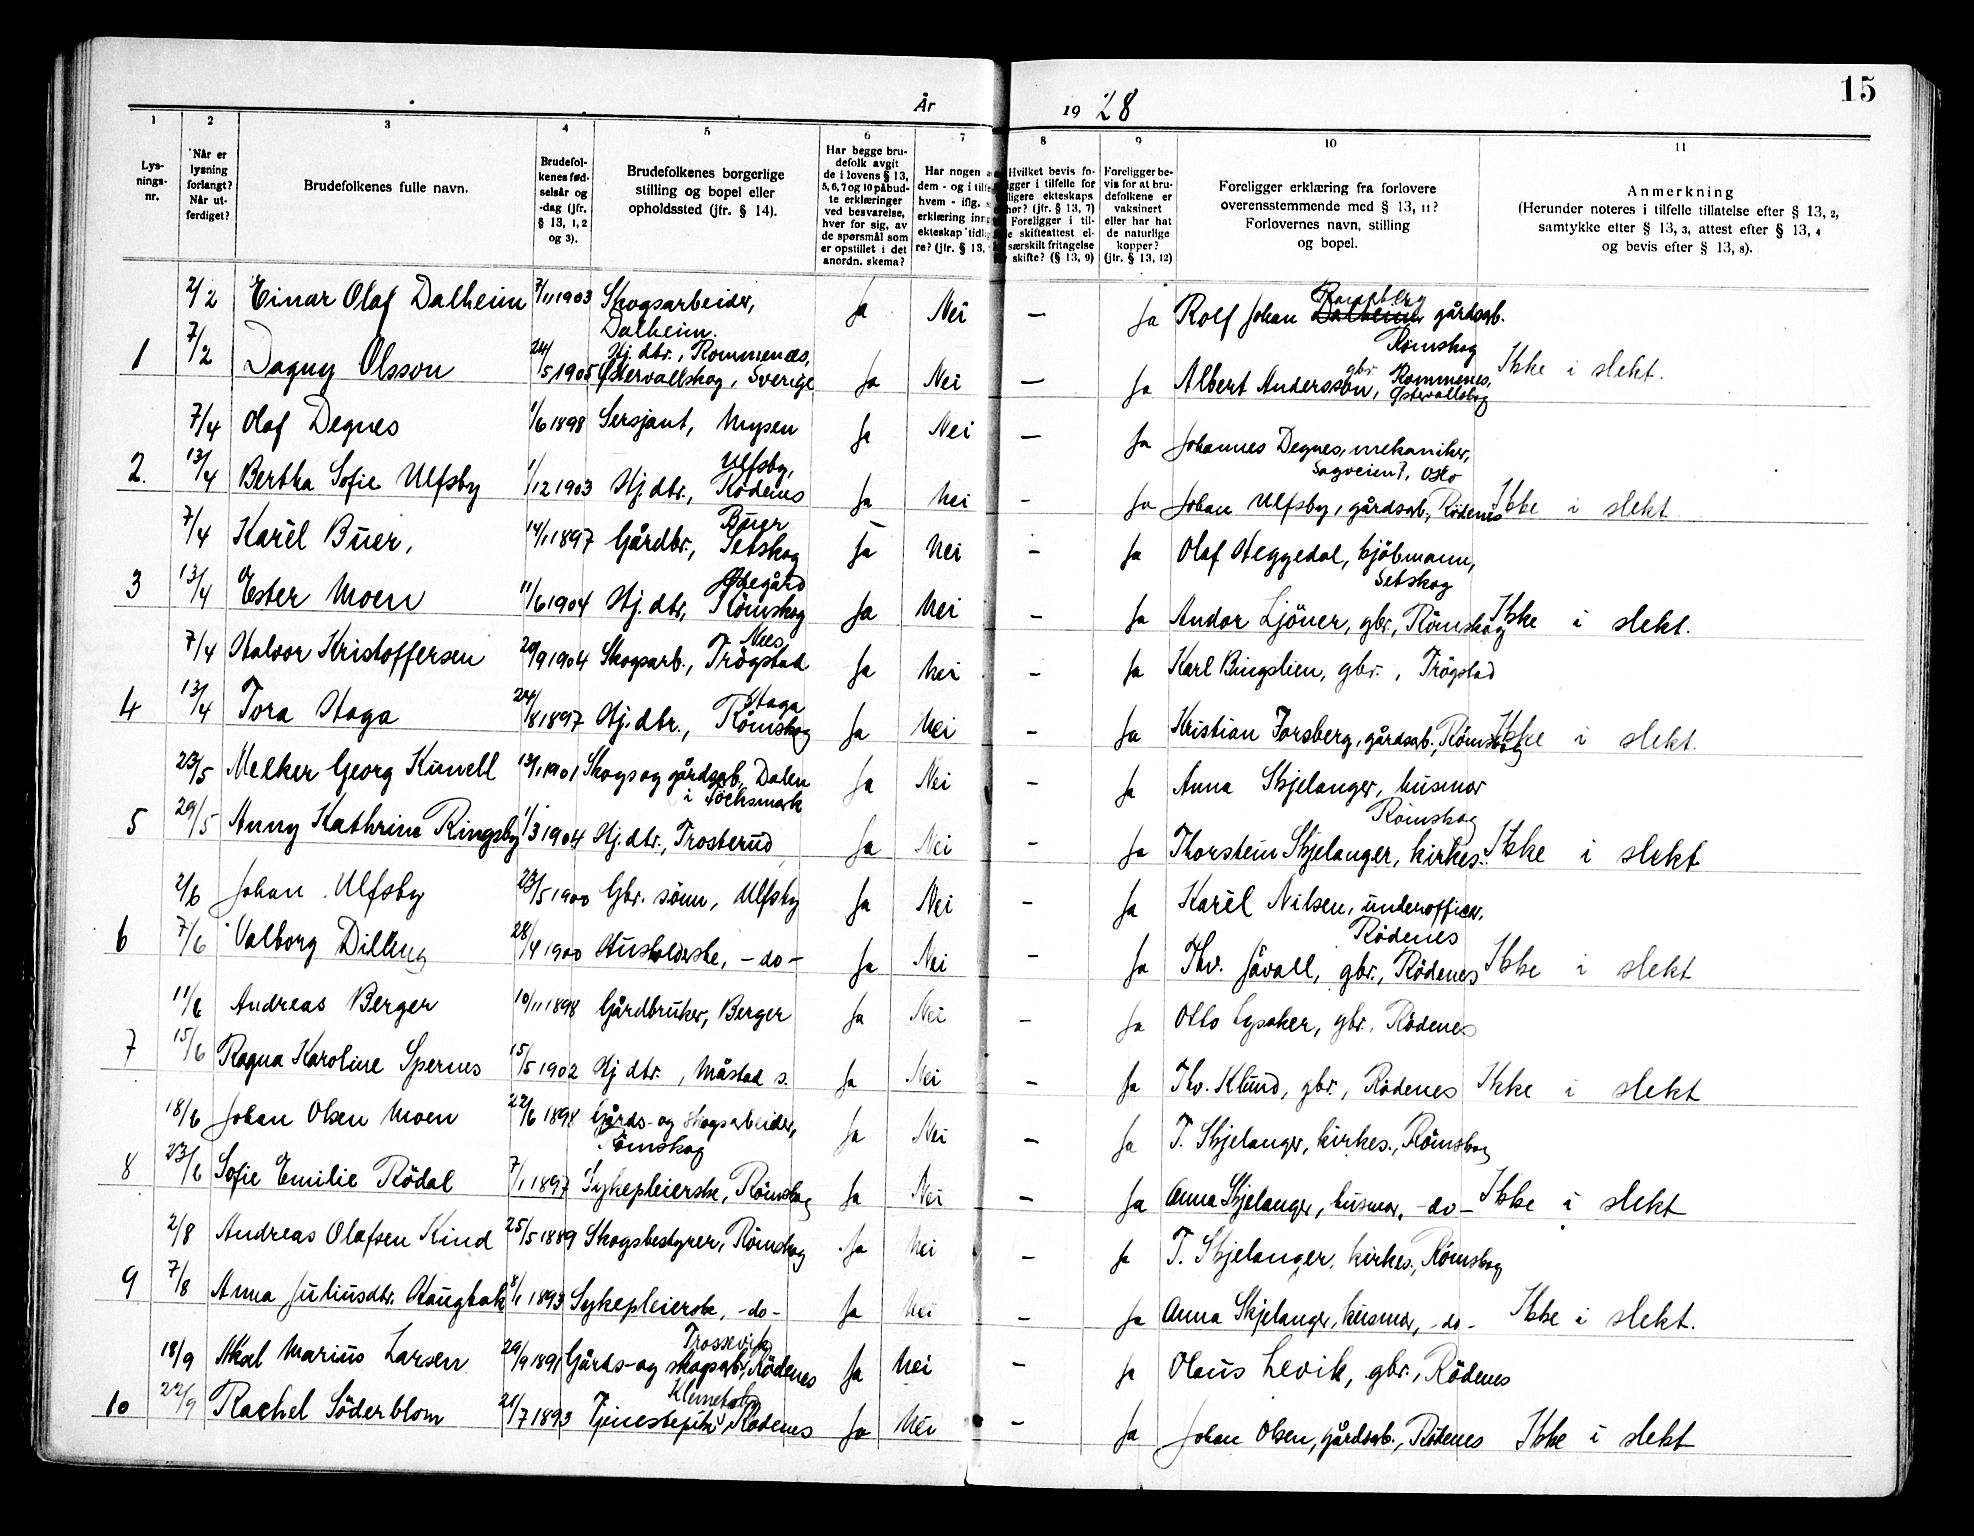 15
År 1928
1 2 3 4 5 6 7 8 9 10 11
Lys-
nings-
nr.
Når er
lysning
forlangt?
Når ut-
ferdiget?
Brudefolkenes fulle navn.
Brudefol-
kenes fød-
selsår og
-dag (jfr.
§ 13, 1, 2
og 3).
Brudefolkenes borgerlige
stilling og bopel eller
opholdssted (jfr. § 14).
Har begge bru-
defolk avgit
de i lovens § 13,
5, 6, 7 og 10 påbud-
te erklæringer
ved besvarelse,
hver for sig, av
de spørsmål som
er opstillet i det
anordn. skema?
Har nogen a
dem - og i tilfe
hvem - iflg. s
erklæring inng
ekteskap tidlig
re? (jfr. § 13,
Hvilket bevis fo-
igger i tilfelle for
ligere ekteskaps
hør? (jfr. § 13, 7)
Foreligger i til-
e skifteattest el-
særskilt fritagelse
skifte? (§ 13, 9)
Foreligger be-
vis for at bru-
defolkene er
vaksinert
eller har hat
de naturlige
kopper?
(jfr. § 13, 12)
Foreligger erklæring fra forlovere
overensstemmende med § 13, 11?
Forlovernes navn, stilling
og bopel.
Anmerkning
(Herunder noteres i tilfelle tillatelse efter § 13, 2,
samtykke efter § 13, 3, attest efter § 13, 4
og bevis efter § 13, 8).
2/2 Einar Olaf Dalheim 7/11 1903 Skogsarbeider, Dalheim. Ja Nei — Ja Rolf Johan Dalheim gårdsarb. Rømskog
1 7/2 Dagny Olsson 24/5 1905 Hj.dtr., Rommenæs, Østervallskog, Sverige Ja Nei — Ja Albert Andersson, gbr. Rommenes, Østervallskog Ikke i slekt.
7/4 Olaf Degnes 1/6 1898 Sersjant, Mysen Ja Nei — Ja Johannes Degnes, mekaniker, Sagveien 7, Oslo
2. 13/4 Bertha Sofie Ulfsby 1/12 1903 Hj.dtr., Ulfsby, Rødenes Ja Nei — Ja Johan Ulfsby, gårdsarb, Rødenes Ikke i slekt
7/4 Karel Buer, 14/11 1897 Gårdbr., Buer Setskog Ja Nei — Ja Olaf Heggedal, kjöbmann, Setskog
3 13/4 Ester Moen 11/6 1904 Hj.dtr, Øvegård Römskog Ja Nei — Ja Andor Ljöner, gbr., Römskog Ikke i slekt.
7/4 Halvor Kristoffersen 20/9 1904 Skogsarb., Nees Trögstad Ja Nei — Ja Karl Bingslien, gbr., Trögstad
4 13/4 Tora Haga 24/8 1897 Hj.dtr., Haga Römskog Ja Nei — Ja Kristian Forsberg, gårdsarb., Römskog Ikke i slekt.
23/5 Melker Georg Kunell 13/1 1901 Skogs og gårdsarb, Dalen i Töcksmark Ja Nei — Ja Anna Skjelanger, husmor Römskog
5 29/5 Anny Kathrine Ringsby 1/3 1904 Hj.dtr., Trosterud Ja Nei — Ja Thorstein Skjelanger, kirkes. Ikke i slekt
2/6 Johan Ulfsby 23/5 1900 Gbr. sönn, Ulfsby Ja Nei — Ja Karel Nilsen, underofficer, Rödenes
6 7/6 Valborg Dilling 28/4 1900 Husholderske, -do- Ja Nei — Ja Thv. Jåvall, gbr., Rödenes Ikke i slekt
11/6 Andreas Berger 10/11 1898 Gårdbruker, Berger Ja Nei — Ja Otto Lysaker, gbr. Rödenes
7 15/6 Ragna Karoline Spernes 15/5 1902 Hj dtr., Måstad s. Ja Nei — Ja Thv. Klund, gbr., Rödenes Ikke i slekt
18/6 Johan Olsen Moen 22/6 1898 Gårds- og skogsarbeider, Römskog Ja Nei — Ja T. Skjelanger, kirkes., Römskog
8 23/6 Sofie Emilie Rödal 7/1 1897 Sykepleierske, Römskog Ja Nei — Ja Anna Skjelanger, husmor, -do- Ikke i slekt
2/8 Andreas Olafsen Kind 25/5 1889 Skogsbestyrer, Römskog Ja Nei — Ja T. Skjelanger, kirkes., Römskog
9 7/8 Anna Juliusdtr. Haugbak 8/1 1893 Sykepleierske, -do- Ja Nei — Ja Anna Skjelanger, husmor, -do- Ikke i slekt.
18/9 Aksel Marius Larsen 29/9 1891 Gårds- og skogsarb, Trossevik Rödenes Ja Nei — Ja Olaus Levik, gbr., Rödenes
10 22/9 Rachel Söderblom 21/7 1893 Tjenestepike, Rödenes Ja Nei — Ja Johan Olsen, gårdsarb., Rödenes Ikke i slekt